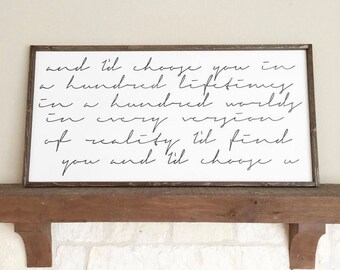 and I'd choose you in
a hundred lifetimes
in a hundred worlds
in every version
of reality I'd find
you and I'd choose u